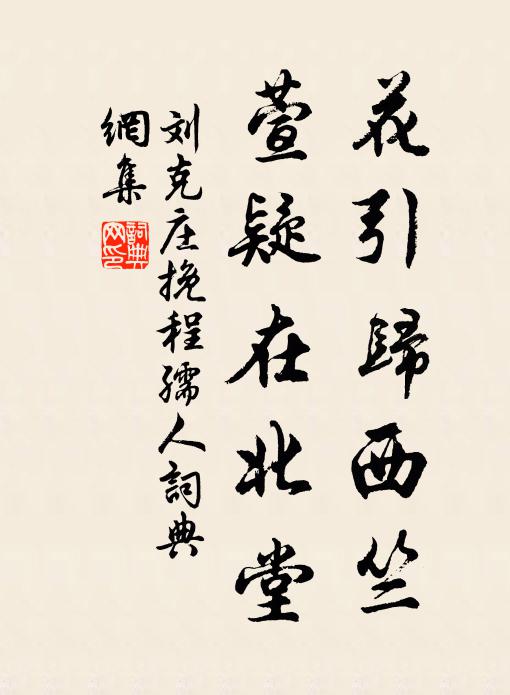 花引歸西竺
萱疑在北堂
刘克庄挽程孺人詞典
網集
詞典
网印